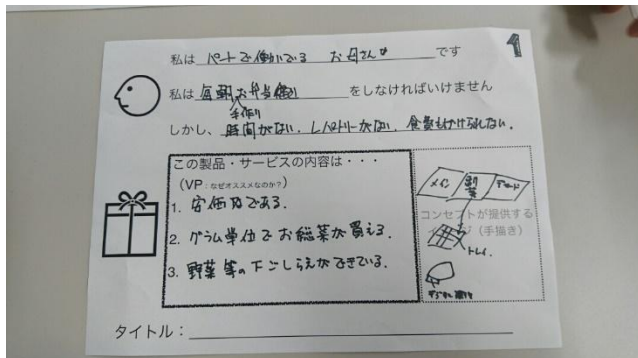 1
私は パートで働いている お母さん です
私は 毎朝お弁当作り をしなければいけません
手作り
しかし、時間がない、レパートリーがない、食費もかけられない。
この製品・サービスの内容は・・・
(VP:なぜオススメなのか?)
1. 安価である。
2. グラム単位でお総菜が買える。
3. 野菜等の下ごしらえができている。
メイン 副菜 デザート
コンセプトが提供する
イメージ(手描き)
トレイ
タイトル: